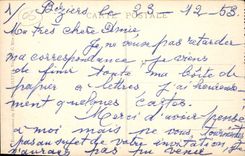 1/ Béziers, le 23-12-53
POSTALE
Ma très chère Amie
Je ne veux pas retarder
ma correspondance, je viens
de finir toute ma boîte de
papier à lettres, j'ai heureuse-
ment quelques cartes.
Merci d'avoir pensé
à moi mais ne vous tourmentez
pas au sujet de votre invitation, je
n'aurais pas pu venir